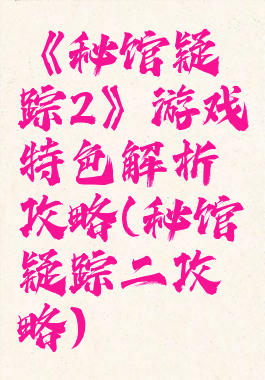 《秘馆疑
踪2》游戏
特色解析
攻略(秘馆
疑踪二攻
略)